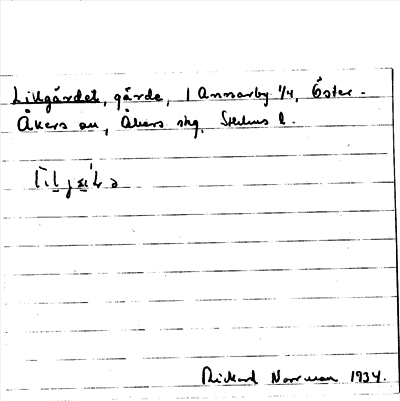 Lillgärdet, gärde, 1 Annarby 1/4, Öster-
Åkers sn, Åkers skg, Sthlms l.
Rickard Norrman 1934.